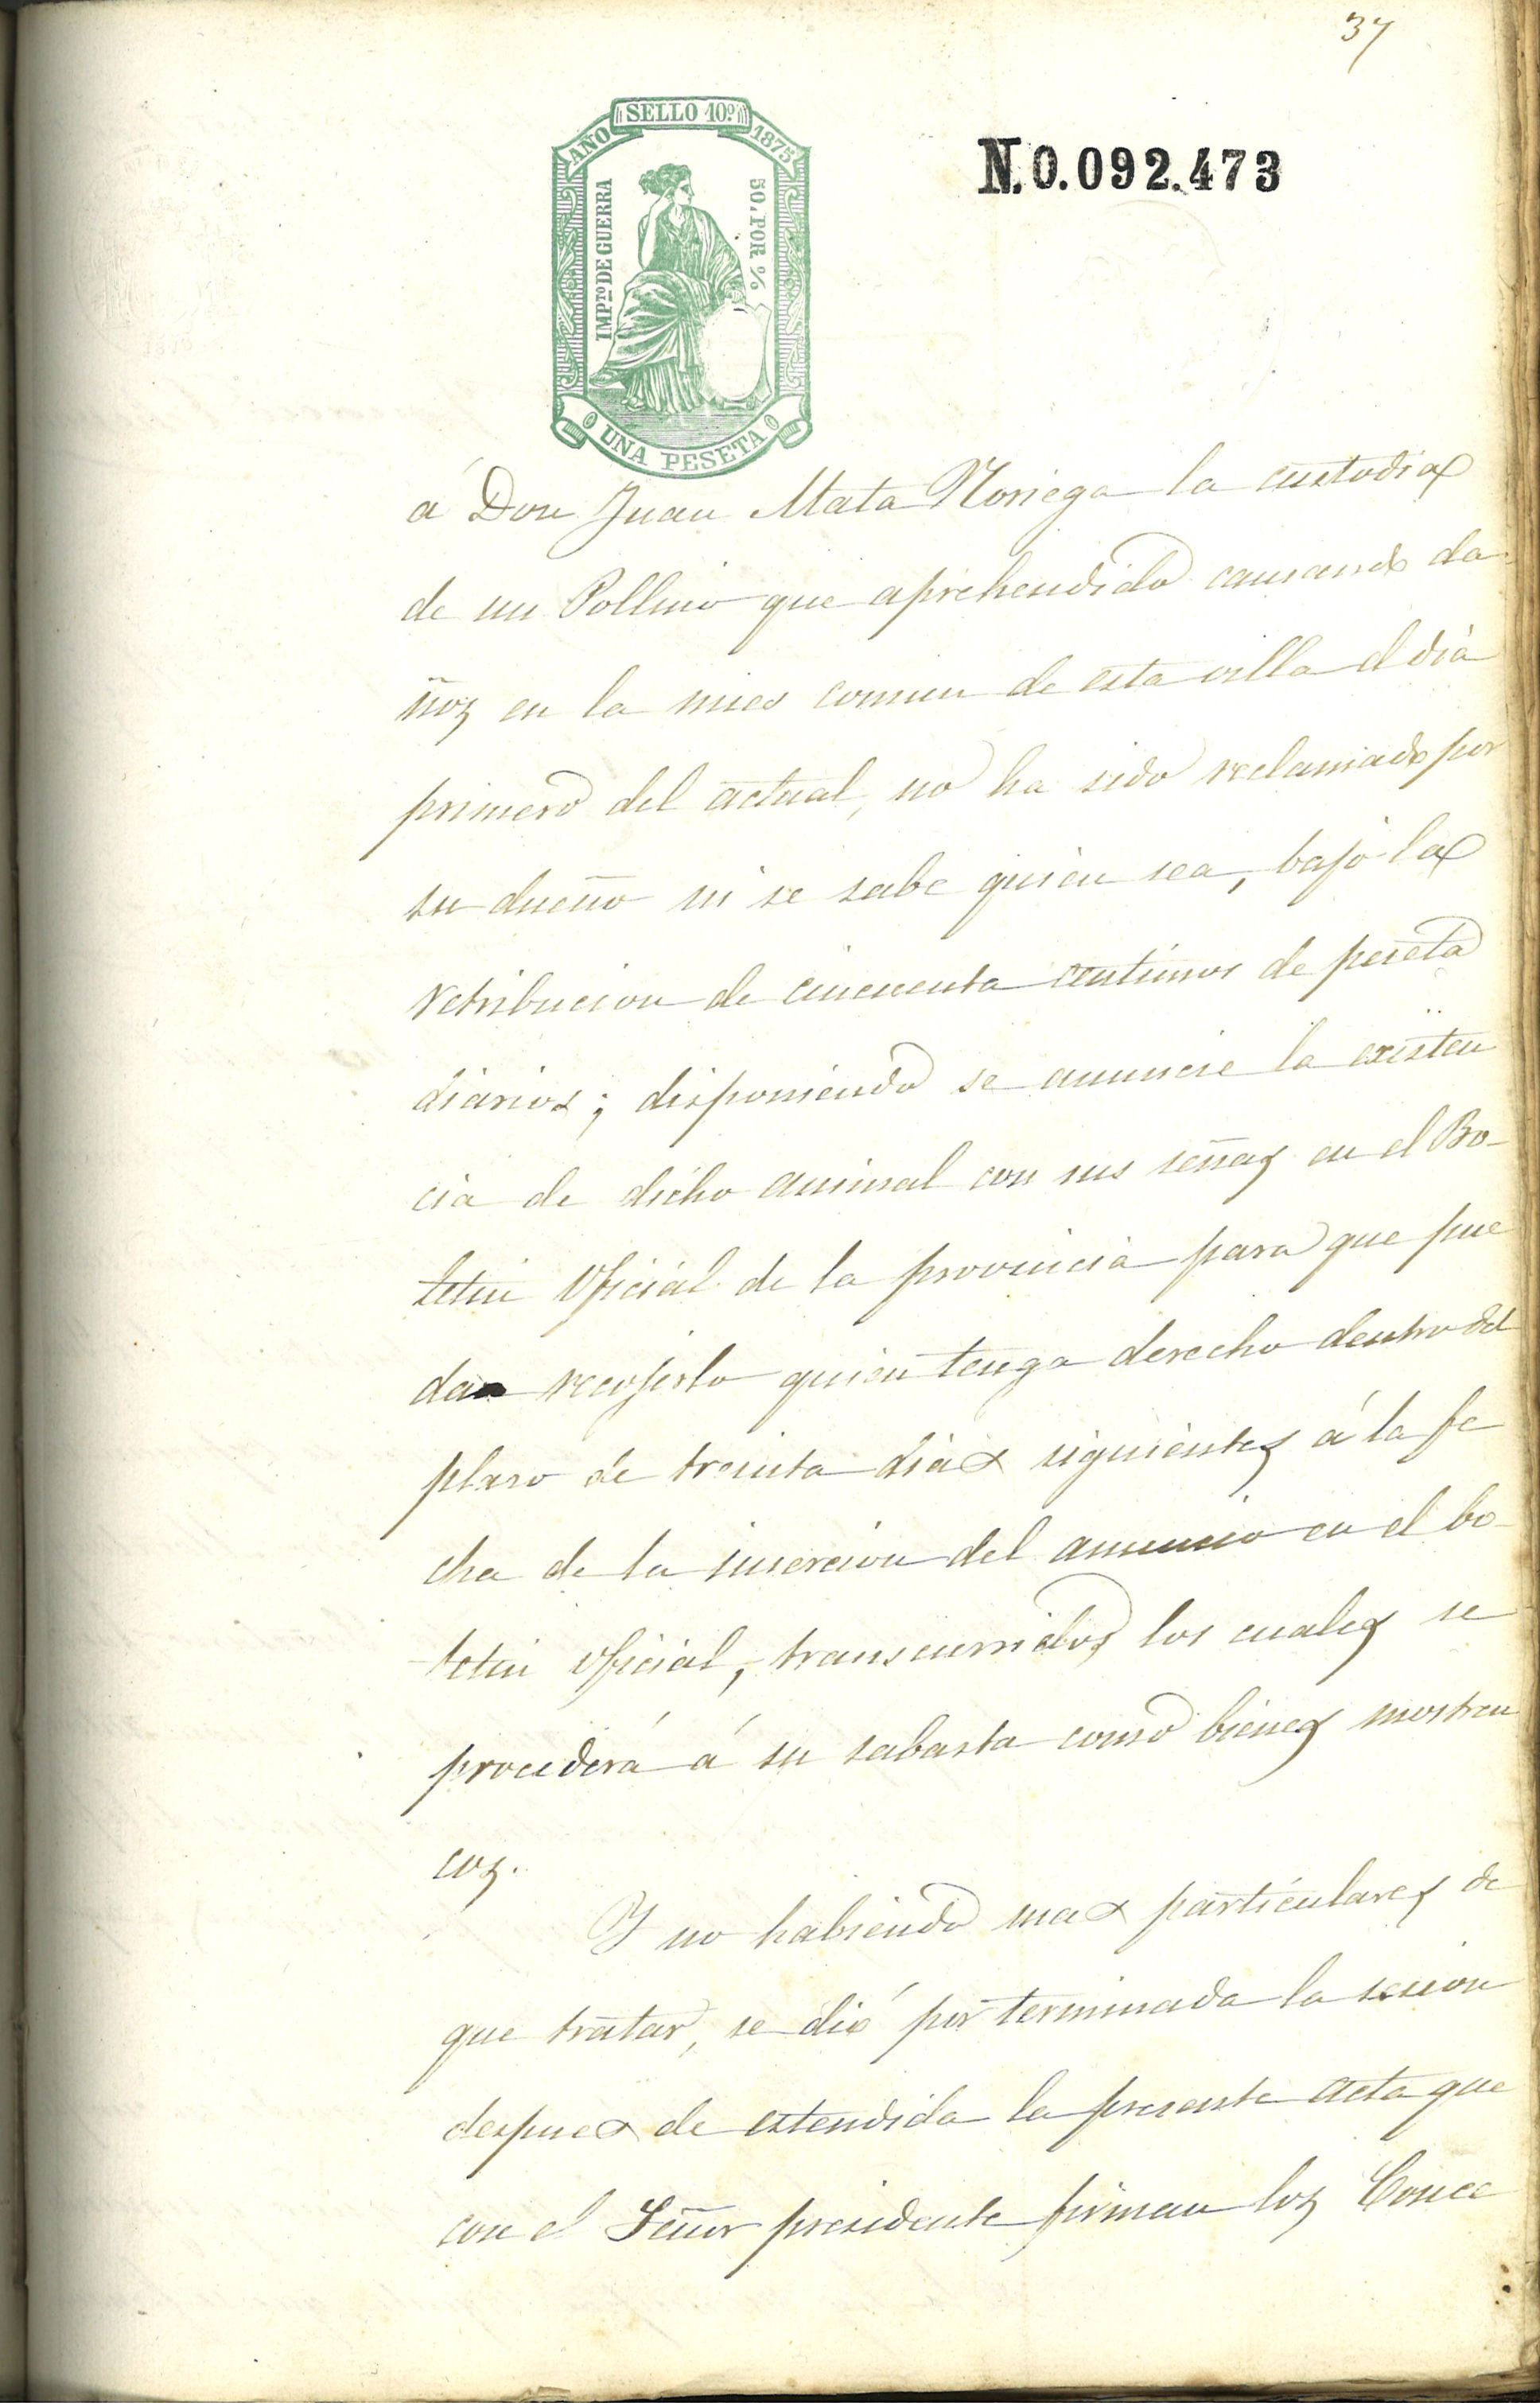 37
SELLO 10º
AÑO 1875
IMPTO DE GUERRA
50. POR %
UNA PESETA
N.0.092.473
á Don Juan Mata Noriega la custodia
de un Pollino que aprehendido causando da-
ños en la mies comun de esta villa el dia
primero del actual, no ha sido reclamado por
su dueño ni se sabe quien sea, bajo la
retribucion de cincuenta centimos de peseta
diarios; disponiendo se anuncie la existen
cia de dicho animal con sus señas en el Bo-
letin Oficial de la provincia para que pue
da recojerlo quien tenga derecho dentro del
plaso de treinta dias siguientes á la fe
cha de la insercion del anuncio en el bo-
letin oficial, transcurridos los cuales se
procederá á su sabasta como bienes mostren
cos.
Y no habiendo mas particulares de
que tratar, se dió por terminada la sesion
despues de estendida la presente acta que
con el Señor presidente firman los Conce